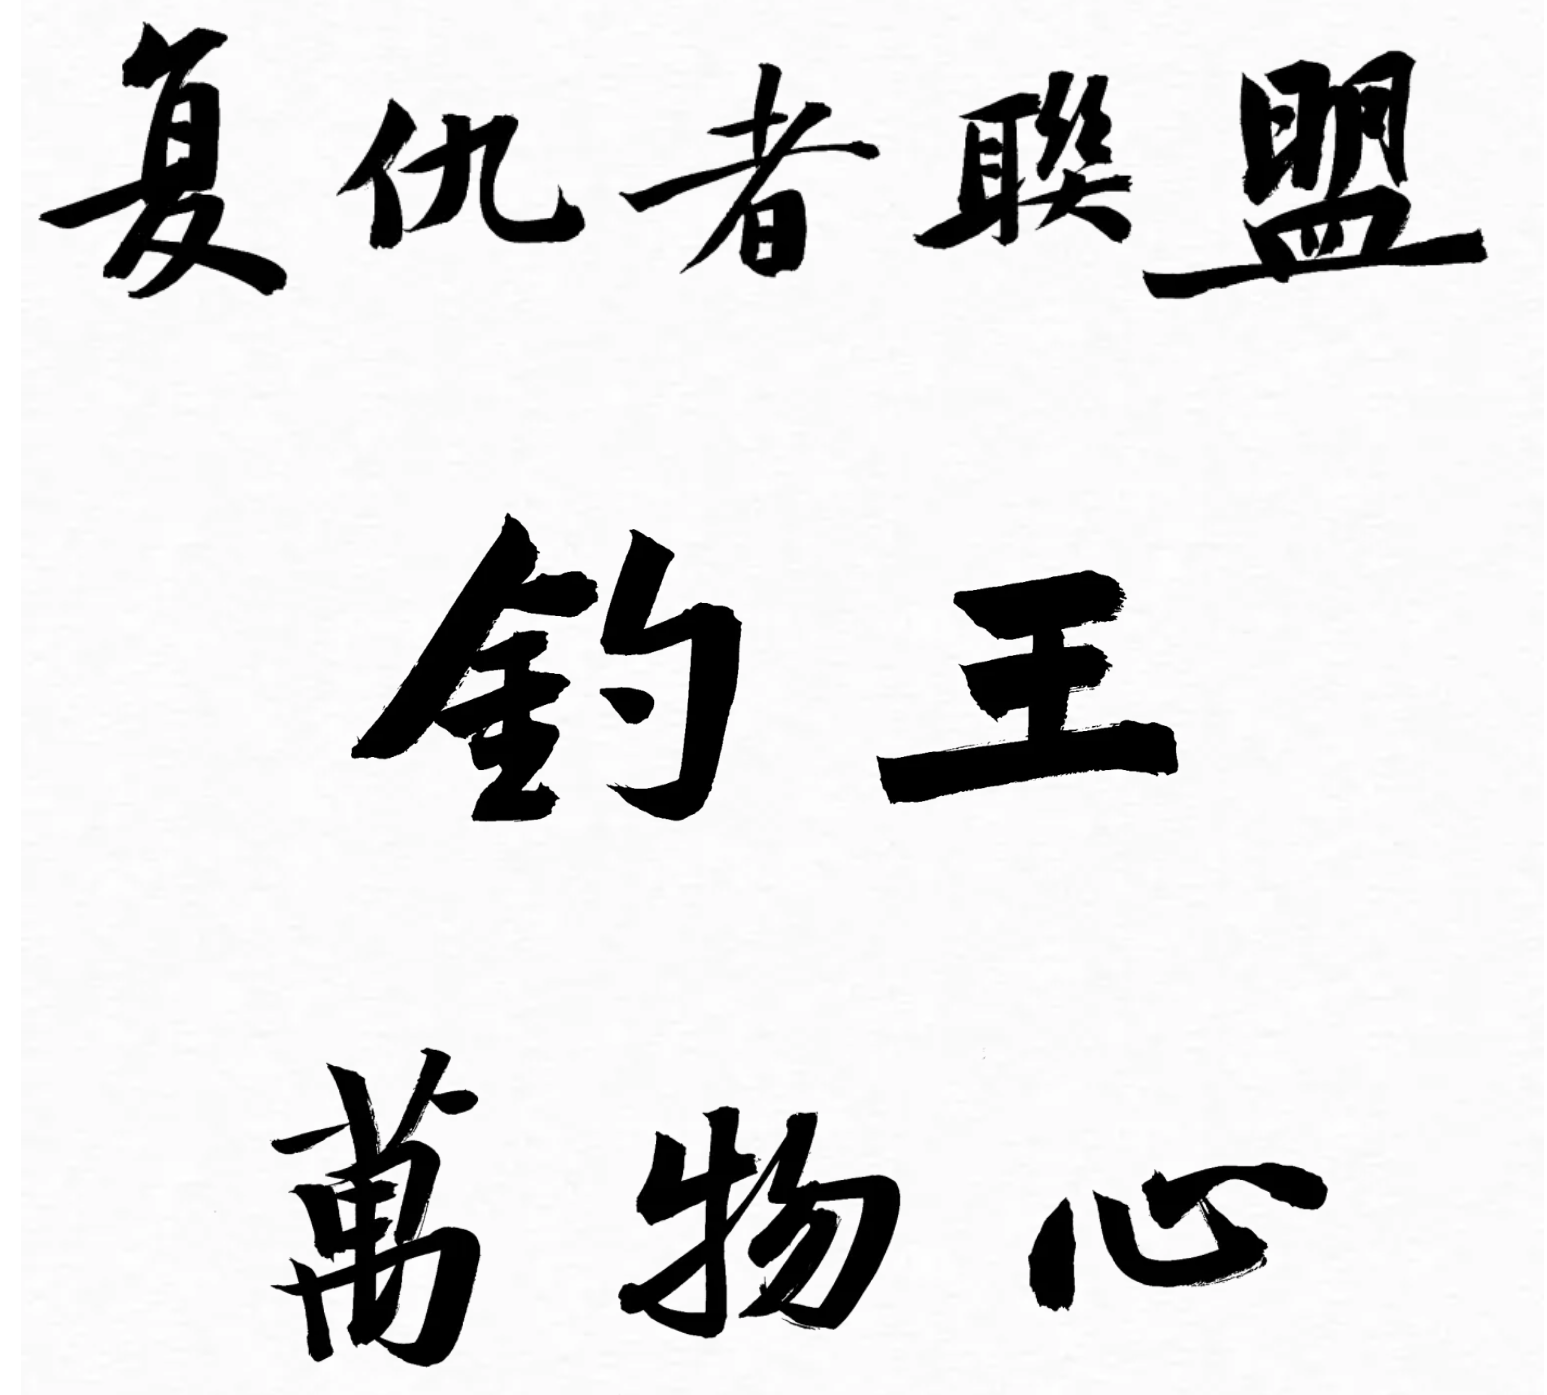 复仇者聯盟
釣王
萬物心